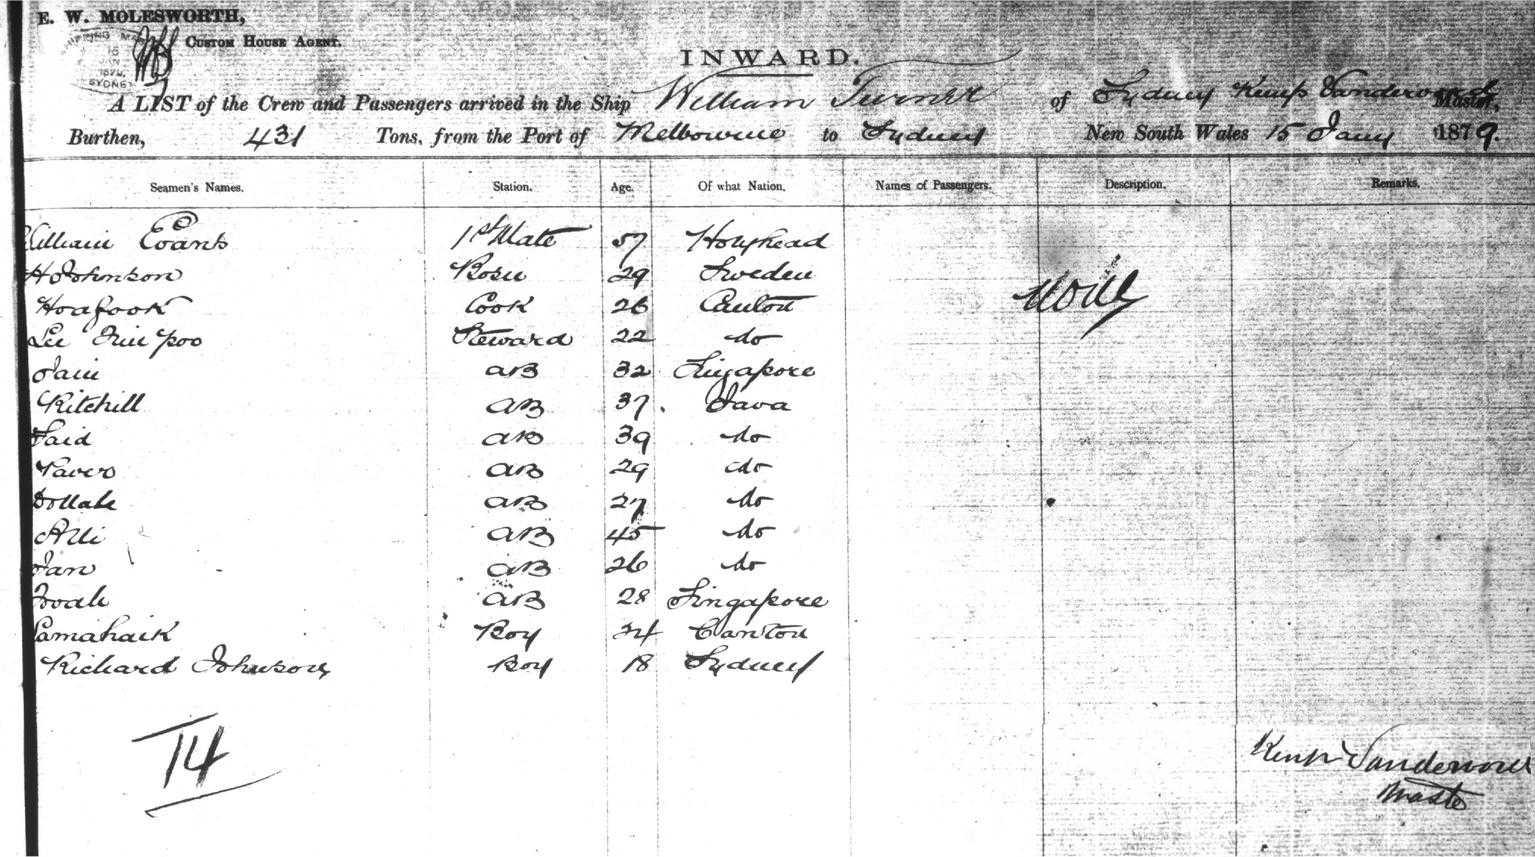 E. W. MOLESWORTH,
CUSTOM HOUSE AGENT.
SYDNEY
INWARD.
A LIST of the Crew and Passengers arrived in the Ship William Turner of Sydney Kemp Master,
Burthen, 431 Tons, from the Port of Melbourne to Sydney New South Wales 15 Jany 1879.
Seamen's Names. Station. Age. Of what Nation. Names of Passengers. Description. Remarks.
William Evans 1st Mate 57 Holyhead
H Johnson Bosn 29 Sweden
Hoafook Cook 26 Canton
Lee poo Steward 22 do
AB 32 Singapore
Kitchill AB 37 Java
Said AB 39 do
AB 29 do
Dollah AB 27 do
Alli AB 45 do
Jan AB 26 do
AB 28 Singapore
Lamahaik Boy 24 Canton
Richard Johnson Boy 18 Sydney
None
14
Kemp
Master